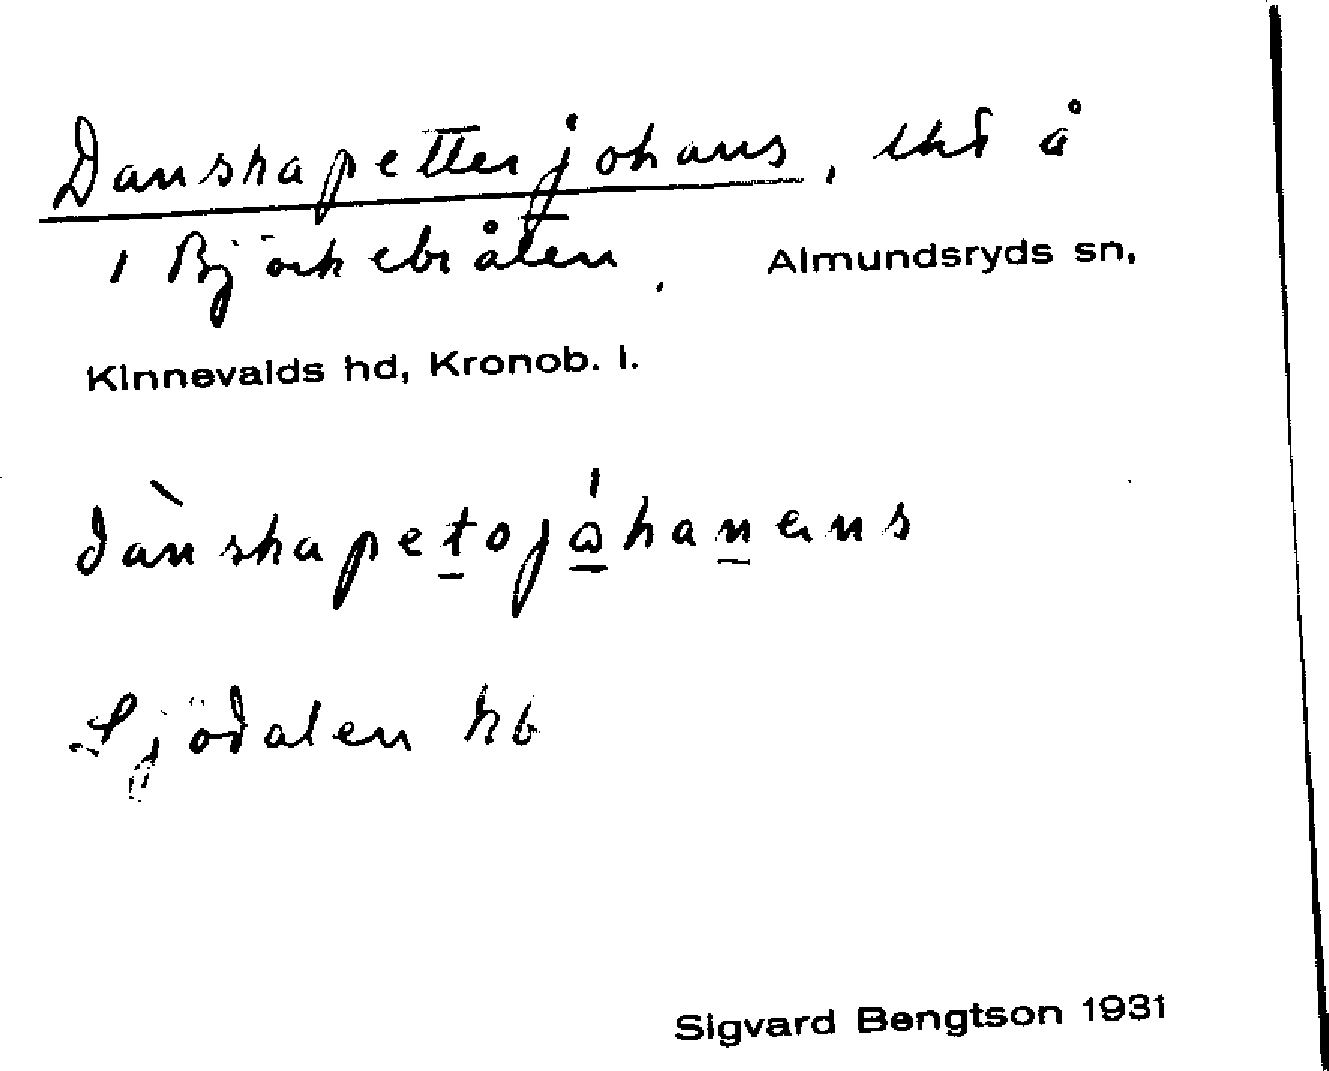 Danskapetterjohans, tkt å
1 Björkebråten. Almundsryds sn,
Kinnevalds hd, Kronob. l.
dànskapetojåhanans
Sjödalen hb
Sigvard Bengtson 1931